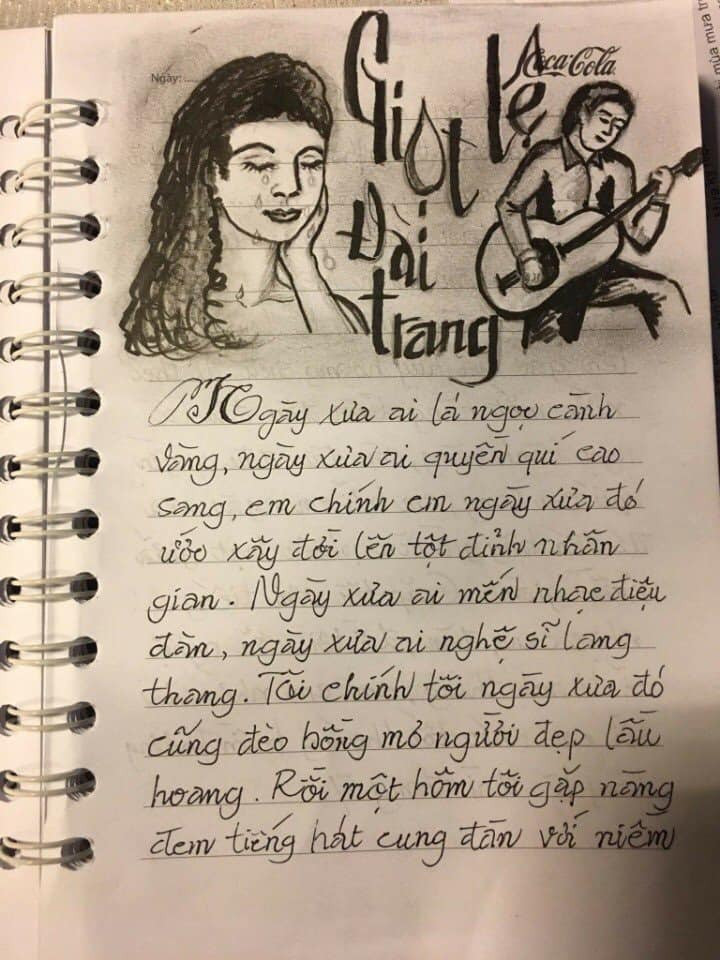 Ngày: .....
Giọt lệ
Coca-Cola
Đài
trang
Ngày xưa ai lá ngọc cành
vàng, ngày xưa ai quyền quí cao
sang, em chính em ngày xưa đó
ước xây đời lên tột đỉnh nhân
gian. Ngày xưa ai mến nhạc điệu
đàn, ngày xưa ai nghệ sĩ lang
thang. Tôi chính tôi ngày xưa đó
cũng đèo bồng mơ người đẹp lầu
hoang. Rồi một hôm tôi gặp nàng
đem tiếng hát cung đàn với niềm